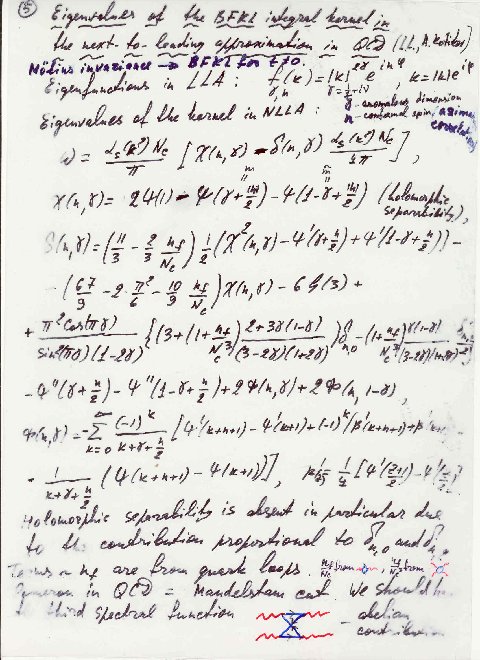 ⑤ Eigenvalues of the BFKL integral kernel in
the next-to-leading approximation in QCD (LL, A. Kotikov)
Möbius invariance → BFKL for t≠0.
Eigenfunctions in LLA: f_{γ,n}(k) = |k|^{2γ} e^{inφ}, k = |k|e^{iφ}
γ = ½+iν
γ - anomalous dimension
n - conformal spin,
Eigenvalues of the kernel in NLLA:
ω = α_s(k²) N_c / π [χ(n,γ) - δ(n,γ) α_s(k²) N_c / 4π],
χ(n,γ) = 2Ψ(1) - Ψ(γ+|n|/2) - Ψ(1-γ+|n|/2) (holomorphic
separability),
δ(n,γ) = (11/3 - 2/3 n_f/N_c) ½ (χ²(n,γ) - Ψ'(γ+n/2) + Ψ'(1-γ+n/2)) -
- (67/9 - 2 π²/6 - 10/9 n_f/N_c) χ(n,γ) - 6ζ(3) +
+ π² cos(πγ) / sin²(πγ)(1-2γ) {(3+(1+n_f/N_c³) 2+3γ(1-γ) / (3-2γ)(1+2γ)) δ_{n0} - (1+n_f/N_c³) γ(1-γ) / (3-2γ)(1+
- Ψ''(γ+n/2) - Ψ''(1-γ+n/2) + 2Φ(n,γ) + 2Φ(n,1-γ),
Φ(n,γ) = -Σ_{k=0}^∞ (-1)^k / (k+γ+n/2) [Ψ'(k+n+1) - Ψ'(k+1) + (-1)^k (β'(k+n+1) + β'(k+
- 1/(k+γ+n/2) (Ψ(k+n+1) - Ψ(k+1))], β' = ¼ [Ψ'(z+1/2) - Ψ'(z/2)]
Holomorphic separability is absent in particular due
to the contribution proportional to δ_{n,0} and δ_{n,
Terms ~ n_f are from quark loops. n_f/N_c from , n_f/N_c³ from
Pomeron in QCD = Mandelstam cut. We should
to third spectral function - abelian
contribution